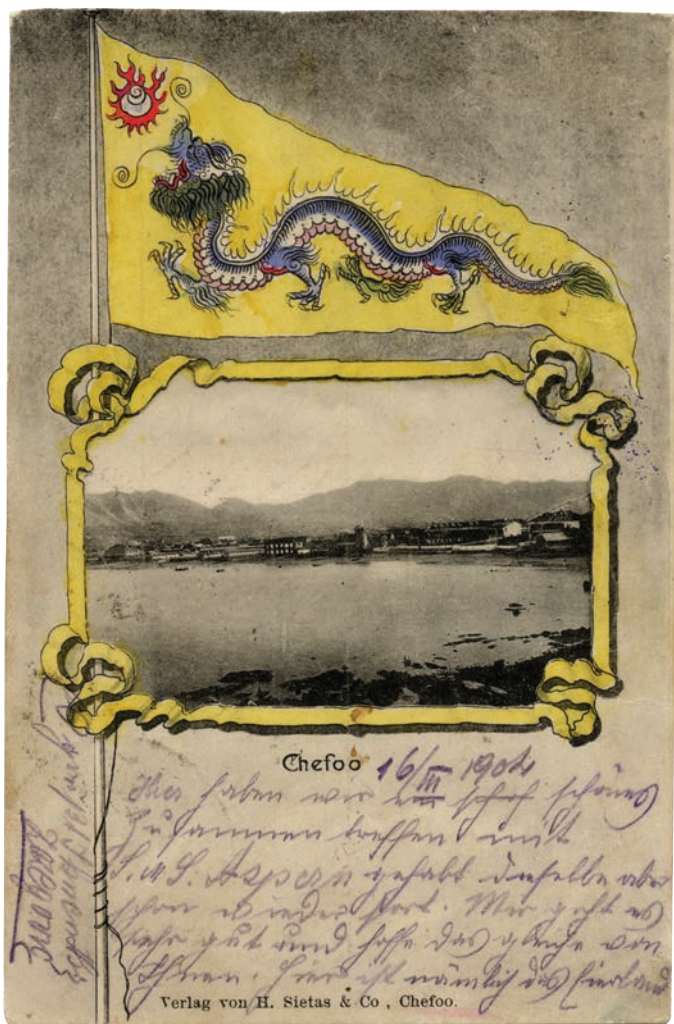 Chefoo 16/III 1904
Hier haben wir ein schönes
Zusammentreffen mit
S.M.S. Aspern gehabt dieselbe aber
schon wieder fort. Mir geht es
sehr gut und hoffe das gleiche von
Ihnen. Hier ist nämlich das
Verlag von H. Sietas & Co, Chefoo.